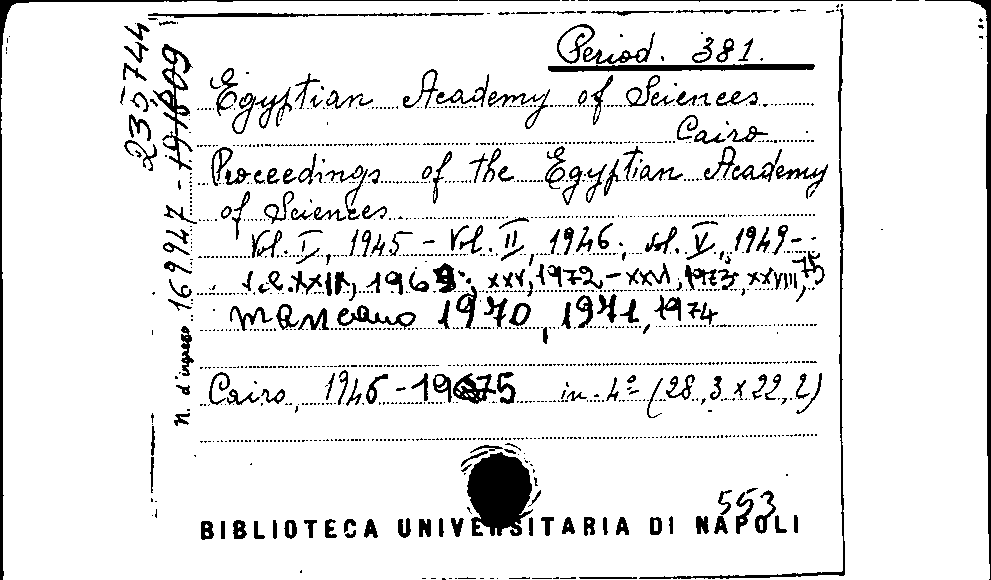 Period. 381.
Egyptian Academy of Sciences.
Cairo
Proceedings of the Egyptian Academy
of Sciences.
Vol. I, 1945 - Vol. II, 1946; vol. V, 1949-
XXIV, 1969; XXV, 1972-XXVI, 1973; XXVIII, 75
mancano 1970, 1971, 1974
Cairo, 1946-1975 in-4º (28,3 x 22,2)
N. d'ingresso 169947 - 191809
235744
553
BIBLIOTECA UNIVERSITARIA DI NAPOLI